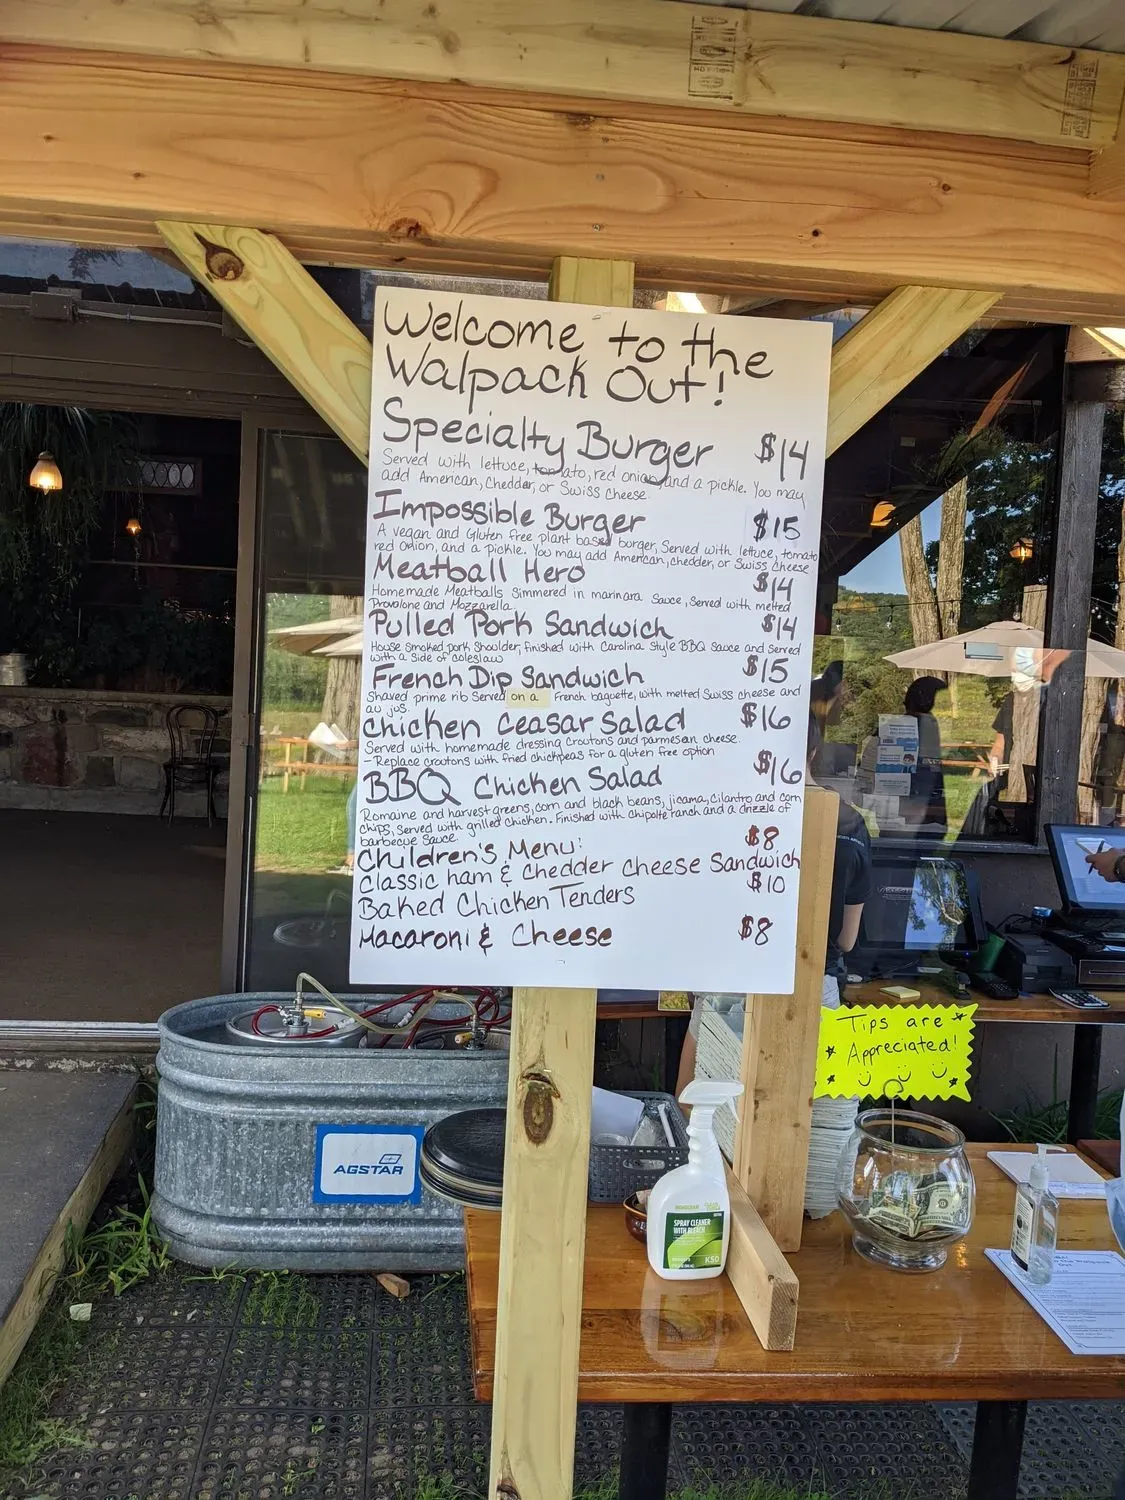 Welcome to the
Walpack Out!
Specialty Burger $14
Served with lettuce, tomato, red onion, and a pickle. You may
add American, Chedder, or Swiss Cheese
Impossible Burger $15
A vegan and Gluten free plant based burger, Served with lettuce, tomato
red onion, and a pickle. You may add American, chedder, or Swiss cheese
Meatball Hero $14
Homemade Meatballs Simmered in marinara Sauce, Served with melted
Provolone and Mozzarella
Pulled Pork Sandwich $14
House Smoked pork Shoulder, finished with Carolina Style BBQ Sauce and Served
with a Side of coleslaw
French Dip Sandwich $15
Shaved prime rib Served on a French baguette, with melted Swiss cheese and
au jus.
Chicken Ceasar Salad $16
Served with homemade dressing croutons and parmesan cheese.
-Replace croutons with fried chickpeas for a gluten free option
BBQ Chicken Salad $16
Romaine and harvest greens, corn and black beans, jicama, cilantro and corn
chips, Served with grilled chicken. Finished with chipolte ranch and a drizzle of
barbecue sauce.
Children's Menu: $8
Classic ham & Chedder Cheese Sandwich
Baked Chicken Tenders $10
Macaroni & Cheese $8
Tips are
Appreciated!
AGSTAR
SPRAY CLEANER
WITH BLEACH